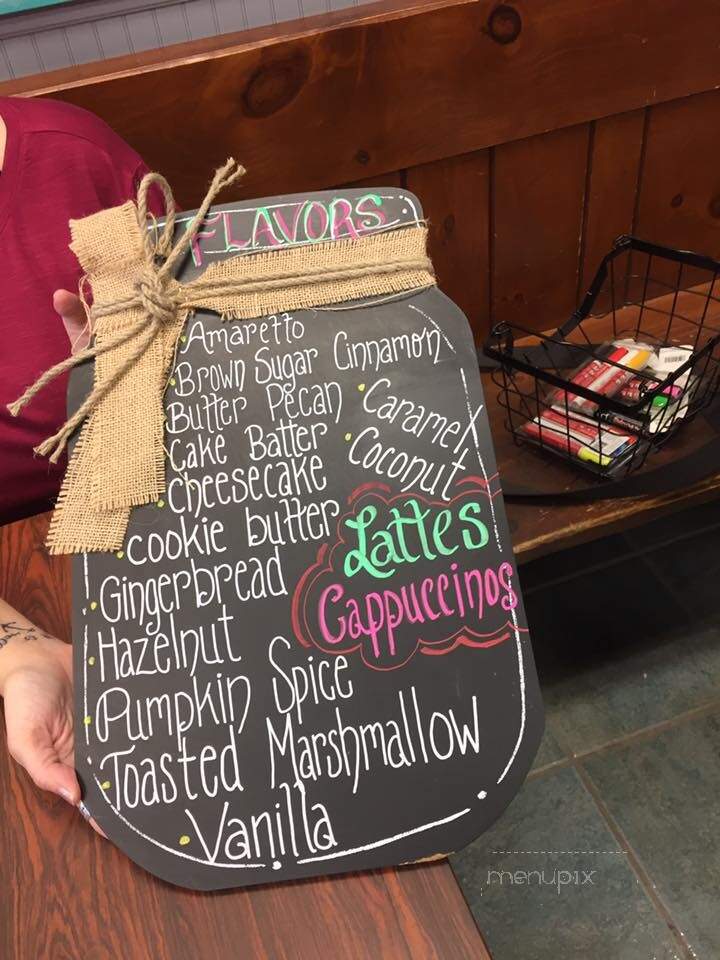 FLAVORS
Amaretto
Brown Sugar Cinnamon
Butter Pecan
Caramel
Cake Batter
Coconut
Cheesecake
cookie butter
Lattes
Cappuccinos
Gingerbread
Hazelnut
Pumpkin Spice
Toasted Marshmallow
Vanilla
menupix